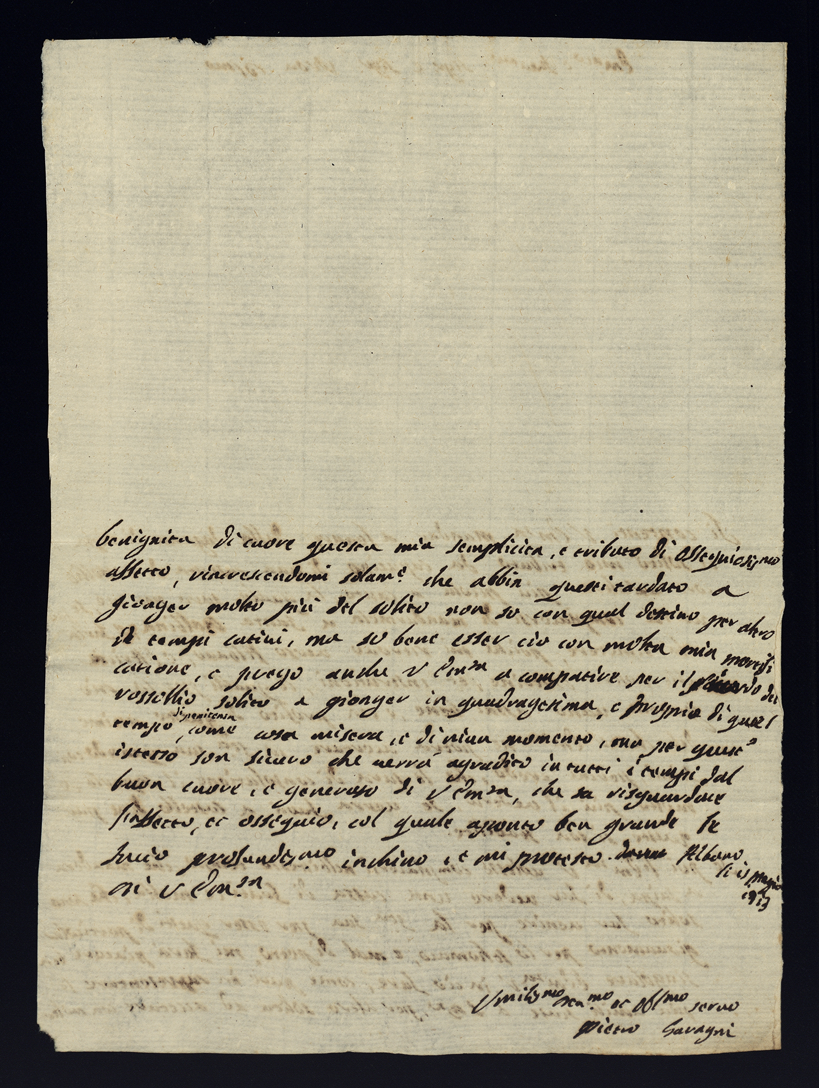 benignita di cuore questa mia semplicita, e tributo di ossequiosissmo
affetto, rincrescendomi solamte che abbia questi tardato a
gionger molto più del solito non so con qual destino per altro
di tempi catini, ma so bene esser cio con molta mia mortifi
catione, e prego anche V Emza a compatire per il del
rossellio solito a gionger in quadragesima, e proprio di quel
di penitenza
tempo, come cosa misera, e di niun momento, ma per questo
istesso son sicuro che verrà agradito in tutti i tempi dal
buon cuore, e generoso di V Emza, che sa risguardare
l'affetto, et ossequio, col quale aponto ben grande le
faccio profundissmo inchino, e mi protesto Albano
di V Emza
li 15
Vmilismo et obligmo servo
Pietro